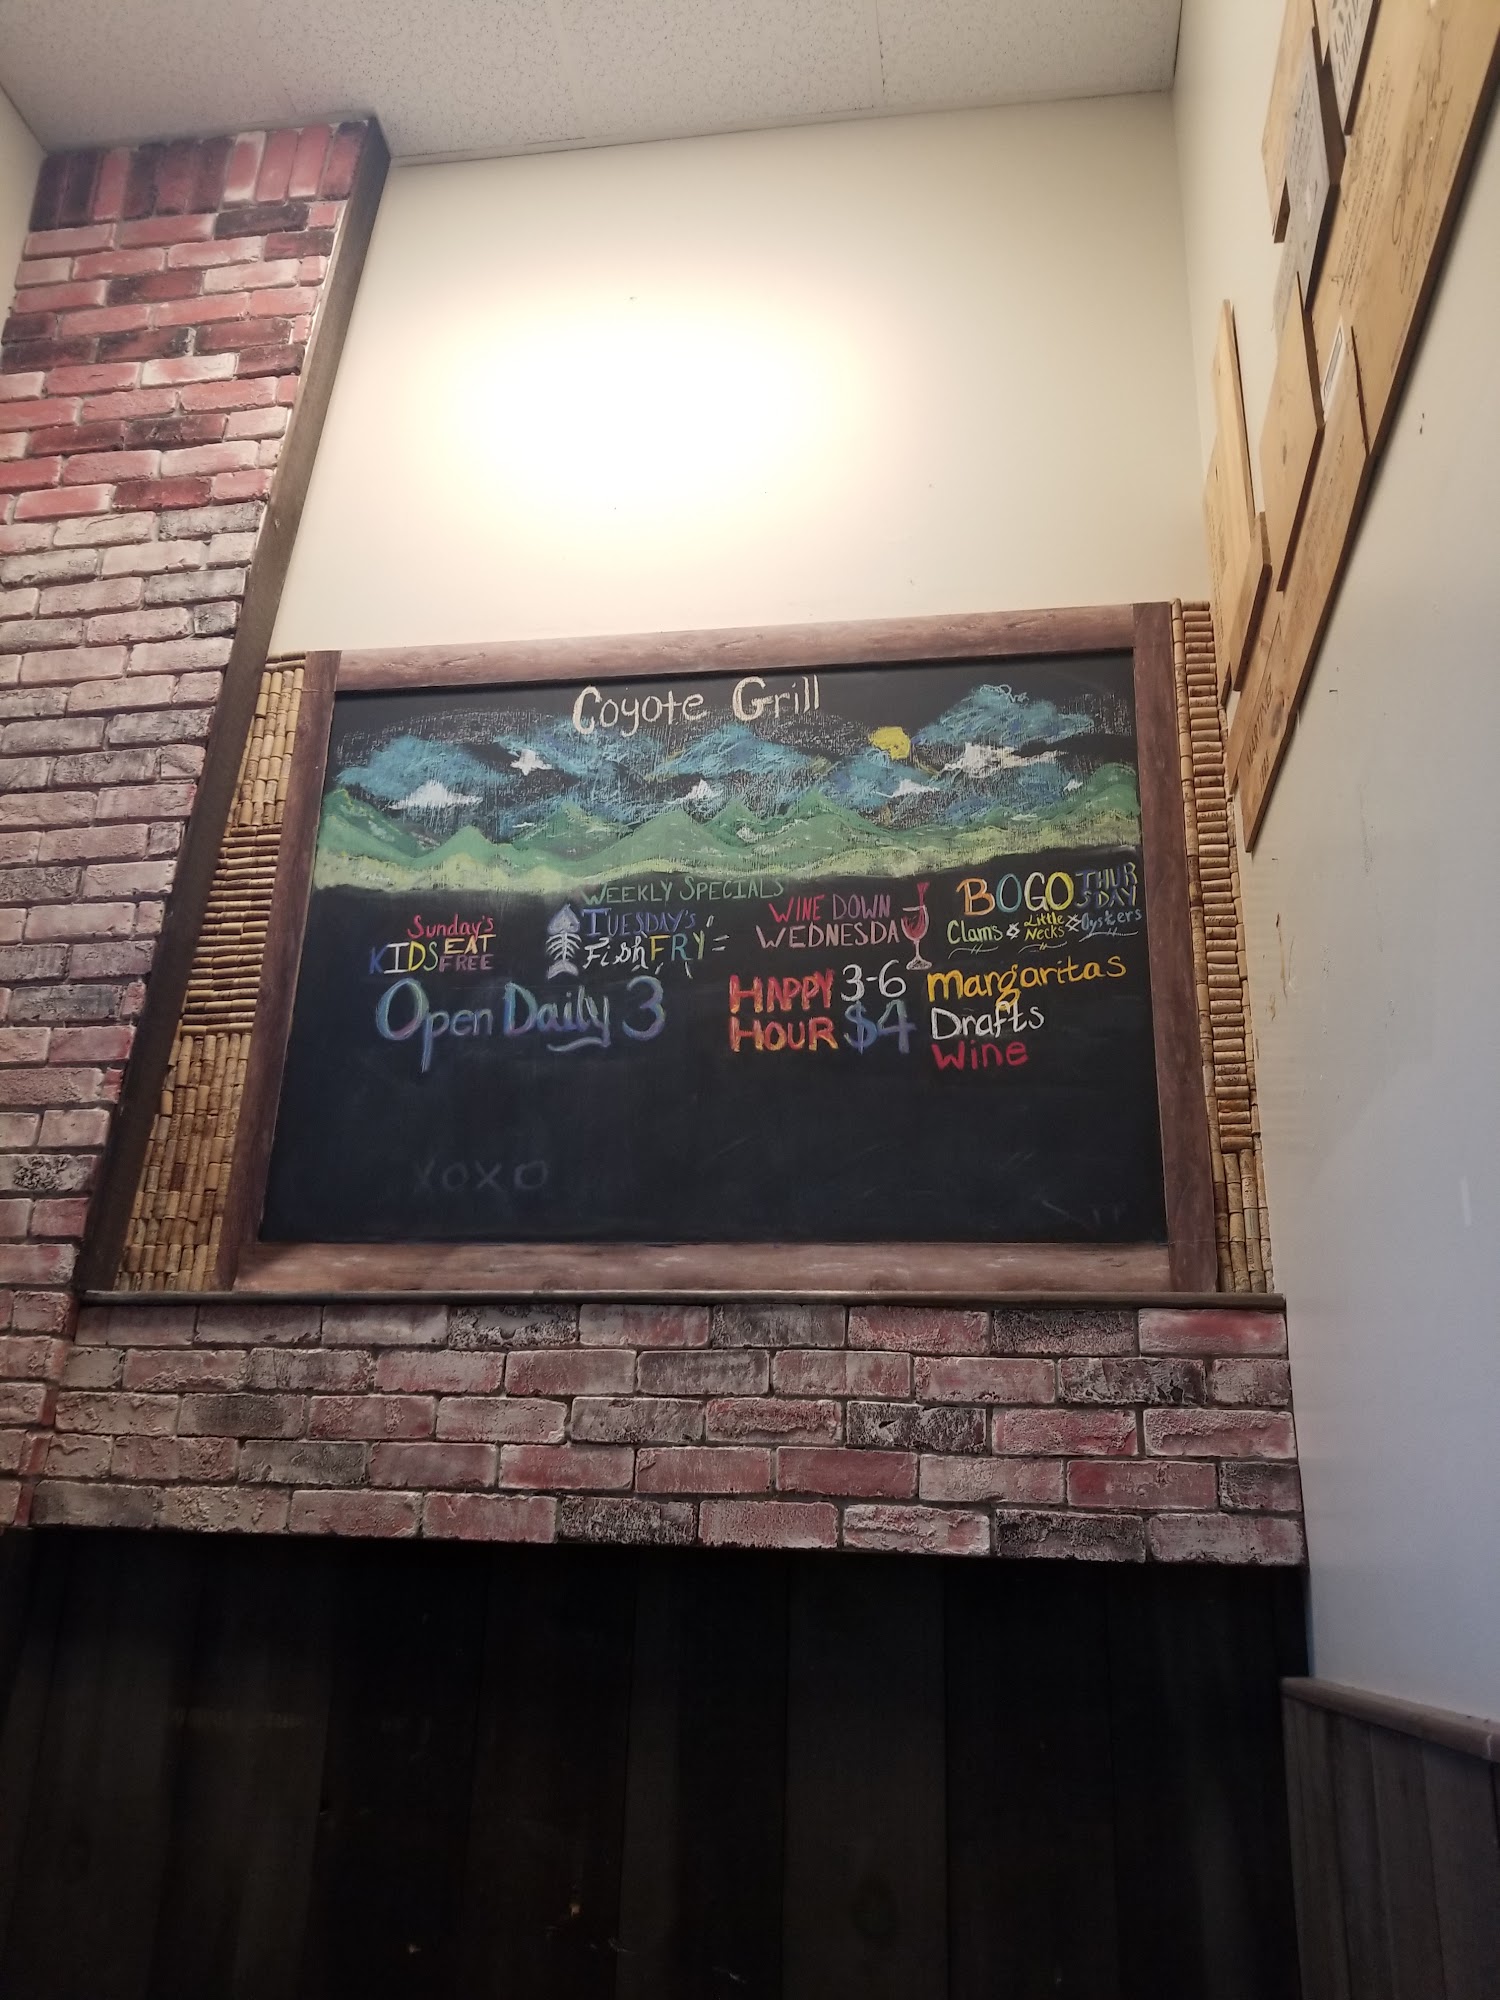 Coyote Grill
WEEKLY SPECIALS
Sunday's
KIDS EAT
FREE
TUESDAY'S
Fish FRY
WINE DOWN
WEDNESDAY
BOGO THUR
SDAY
Clams & Little
Necks & Oysters
Open Daily 3
HAPPY 3-6
HOUR $4
Margaritas
Drafts
Wine
XOXO